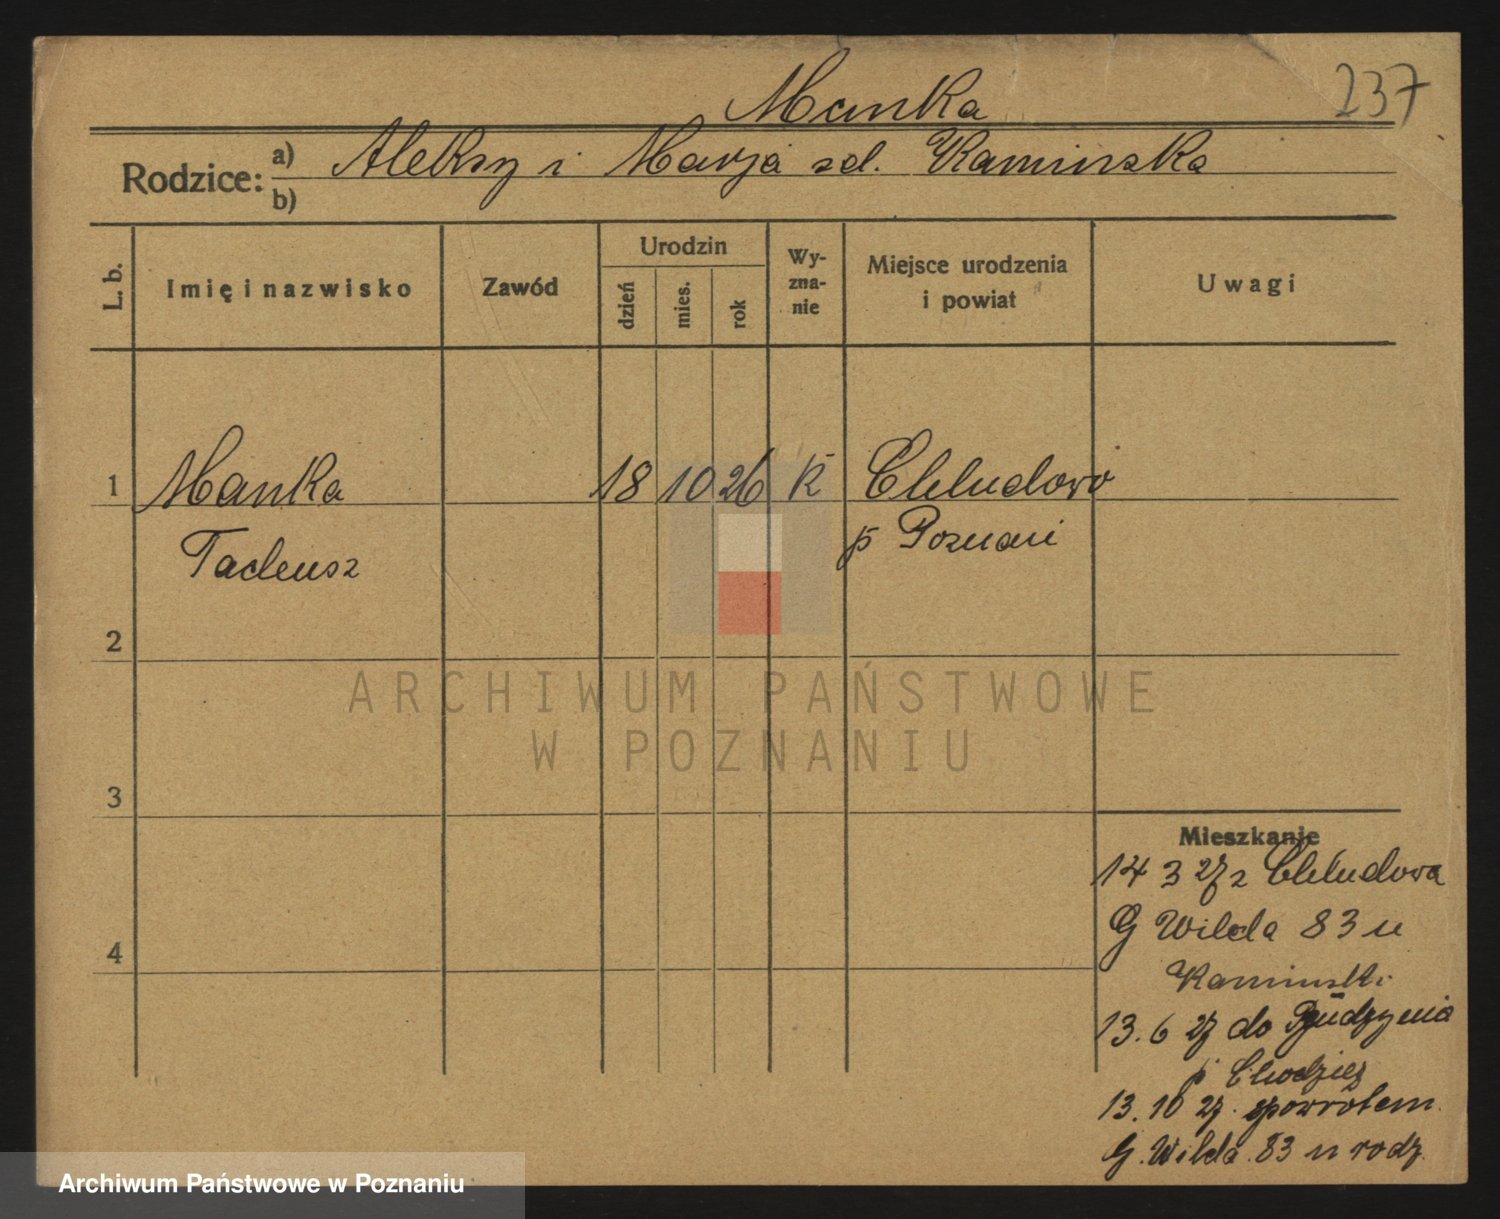 237
Manka
Rodzice: a) Aleksy i Marja zd. Kaminska
b)
L. b. Imię i nazwisko Zawód Urodzin dzień mies. rok Wyznanie Miejsce urodzenia i powiat Uwagi
1 Manka 18 10 26 K Chludowo
Tadeusz p Poznań
2
3
4
Mieszkanie
14 3 27 z Chludowa
G Wilda 83 u
Kaminski
13.6 27 do Budzynia
p Chodzież
13.10 27. spowrotem
G. Wilda 83 u rodz.
ARCHIWUM PAŃSTWOWE
W POZNANIU
Archiwum Państwowe w Poznaniu